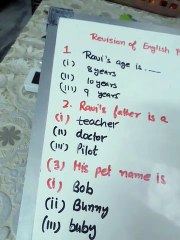 Revision of English
1. Ravi's age is .___
(i) 8 years
(ii) 10 years
(iii) 9 years
2. Ravi's father is a
(i) teacher
(ii) doctor
(iii) Pilot
(3) His pet name is
(i) Bob
(ii) Bunny
(iii) buby